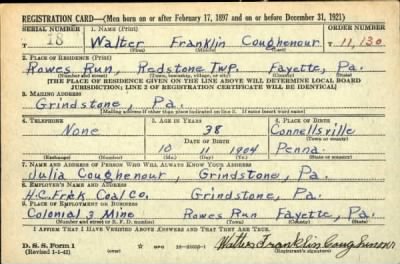 REGISTRATION CARD—(Men born on or after February 17, 1897 and on or before December 31, 1921)
SERIAL NUMBER 1. NAME (Print) ORDER NUMBER
T 18 Walter Franklin Coughenour T 11,130
(First) (Middle) (Last)
2. PLACE OF RESIDENCE (Print)
Rowes Run, Redstone Twp. Fayette, Pa.
(Number and street) (Town, township, village, or city) (County) (State)
[THE PLACE OF RESIDENCE GIVEN ON THE LINE ABOVE WILL DETERMINE LOCAL BOARD
JURISDICTION; LINE 2 OF REGISTRATION CERTIFICATE WILL BE IDENTICAL]
3. MAILING ADDRESS
Grindstone, Pa.
(Mailing address if other than place indicated on line 2. If same insert word same)
4. TELEPHONE 5. AGE IN YEARS 6. PLACE OF BIRTH
None 38 Connellsville
DATE OF BIRTH (Town or county)
10 11 1904 Penna.
(Exchange) (Number) (Mo.) (Day) (Yr.) (State or country)
7. NAME AND ADDRESS OF PERSON WHO WILL ALWAYS KNOW YOUR ADDRESS
Julia Coughenour Grindstone, Pa.
8. EMPLOYER'S NAME AND ADDRESS
H.C. Frick Coal Co. Grindstone, Pa.
9. PLACE OF EMPLOYMENT OR BUSINESS
Colonial 3 Mine Rowes Run Fayette, Pa.
(Number and street or R. F. D. number) (Town) (County) (State)
I AFFIRM THAT I HAVE VERIFIED ABOVE ANSWERS AND THAT THEY ARE TRUE.
D. S. S. Form 1
(Revised 1-1-42) Walter Franklin Coughenour